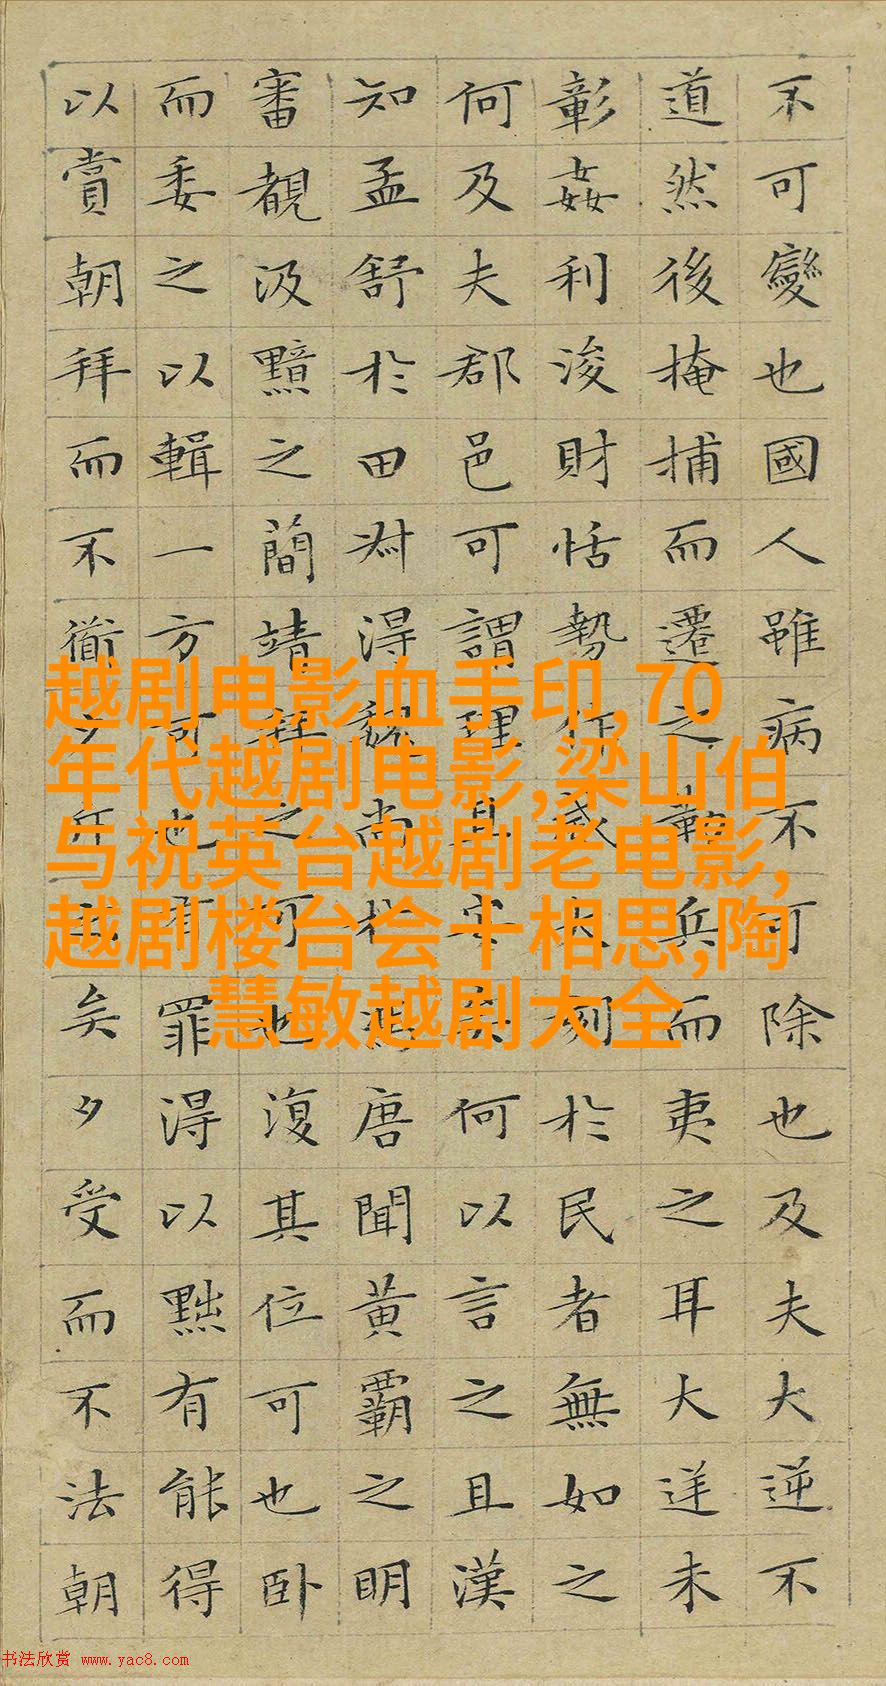 不可變也國人雖病不可除也及夫大逆不
道然後掩捕而遷之勒兵而夷之耳大逆未
彰姦利浚財恬勢作威大刻於民者無如之
何及夫郡邑可謂理且安矣何以言之且漢
知孟舒於田叔得魏尚於馮唐聞黄霸之明
審覩汲黯之簡靖拜之可也復其位可也卧
而委之以輯一方可也有罪得以黜有能得
以賞朝拜而不衜夕斥之矣夕受而不法朝
越剧电影血手印,70
年代越剧电影,梁山伯
与祝英台越剧老电影,
越剧楼台会十相思,陶
慧敏越剧大全
书法欣赏 www.yac8.com